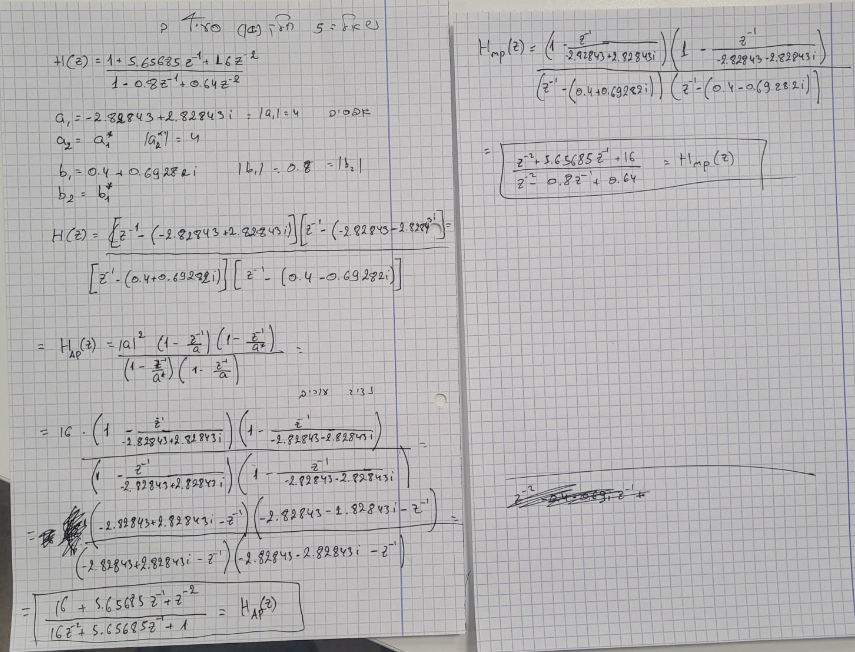 H(z) = (1 + 5.65685z⁻¹ + 16z⁻²) / (1 - 0.8z⁻¹ + 0.64z⁻²)
a₁ = -2.82843 + 2.82843i = |a₁| = 4
a₂ = a₁* |a₂*| = 4
b₁ = 0.4 + 0.69282i |b₁| = 0.8 = |b₂|
b₂ = b₁*
H(z) = [z⁻¹ - (-2.82843 + 2.82843i)][z⁻¹ - (-2.82843 - 2.82843i)] / [z⁻¹ - (0.4 + 0.69282i)][z⁻¹ - (0.4 - 0.69282i)] =
= H_AP(z) = |a|² (1 - z⁻¹/a)(1 - z⁻¹/a*) / (1 - z⁻¹/a*)(1 - z⁻¹/a) =
= 16 · (1 - z⁻¹/(-2.82843+2.82843i))(1 - z⁻¹/(-2.82843-2.82843i)) / (1 - z⁻¹/(-2.82843+2.82843i))(1 - z⁻¹/(-2.82843-2.82843i)) =
= (-2.82843+2.82843i - z⁻¹)(-2.82843 - 2.82843i - z⁻¹) / (-2.82843+2.82843i - z⁻¹)(-2.82843 - 2.82843i - z⁻¹) =
= (16 + 5.65685z⁻¹ + z⁻²) / (16z⁻² + 5.65685z⁻¹ + 1) = H_AP(z)
H_mp(z) = (1 - z⁻¹/(-2.82843+2.82843i))(1 - z⁻¹/(-2.82843-2.82843i)) / (z⁻¹ - (0.4+0.69282i))(z⁻¹ - (0.4 - 0.69282i))
= (z⁻² + 5.65685z⁻¹ + 16) / (z⁻² - 0.8z⁻¹ + 0.64) = H_mp(z)